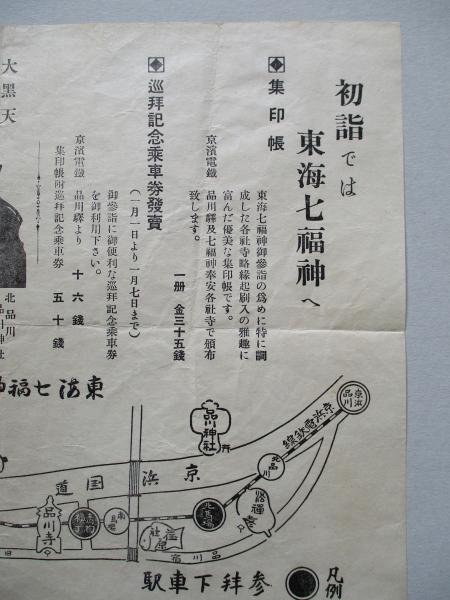 初詣では
東海七福神へ
集印帳
東海七福神御參詣の爲めに特に調
成した各社寺略緣起刷入の雅趣に
富んだ優美な集印帳です。
京濱電鐵
品川驛及七福神奉安各社寺で頒布
致します。
一册 金三十五錢
巡拜記念乘車券發賣
(一月一日より一月七日まで)
御參詣に御便利な巡拜記念乘車券
を御利用下さい。
京濱電鐵 品川驛より 十六錢
集印帳附巡拜記念乘車券 五十錢
大黑天
北品川
品川神社
東海七福神
京浜
品川
京浜電鉄線
北品川
品川神社
京浜国道
北馬場
南馬場
品川寺
品川宿
旧
凡例
参拝下車駅